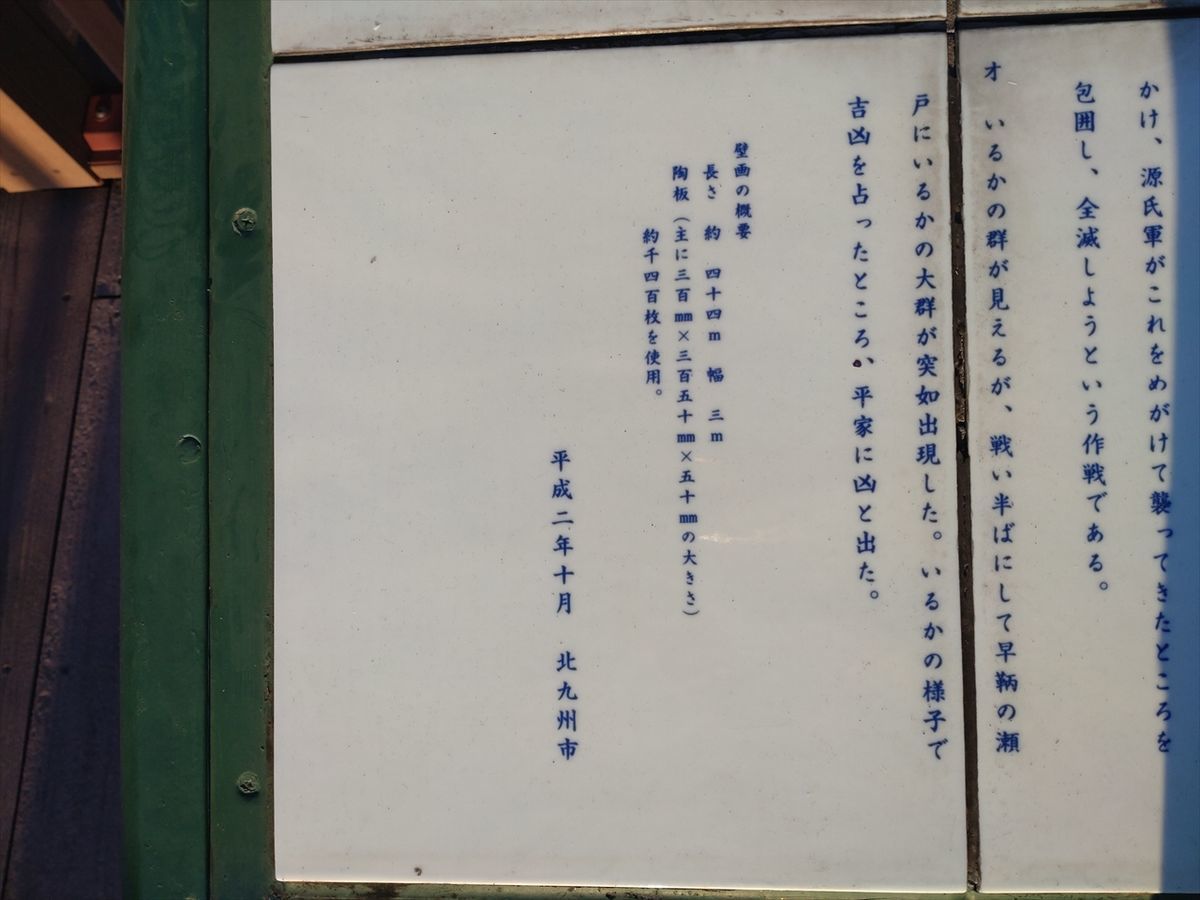 かけ、源氏軍がこれをめがけて襲ってきたところを
包囲し、全滅しようという作戦である。
オ　いるかの群が見えるが、戦い半ばにして早鞆の瀬
戸にいるかの大群が突如出現した。いるかの様子で
吉凶を占ったところ、平家に凶と出た。
壁画の概要
長さ　約　四十四m　幅　三m
陶板（主に三百㎜×三百五十㎜×五十㎜の大きさ）
約千四百枚を使用。
平成二年十月　北九州市